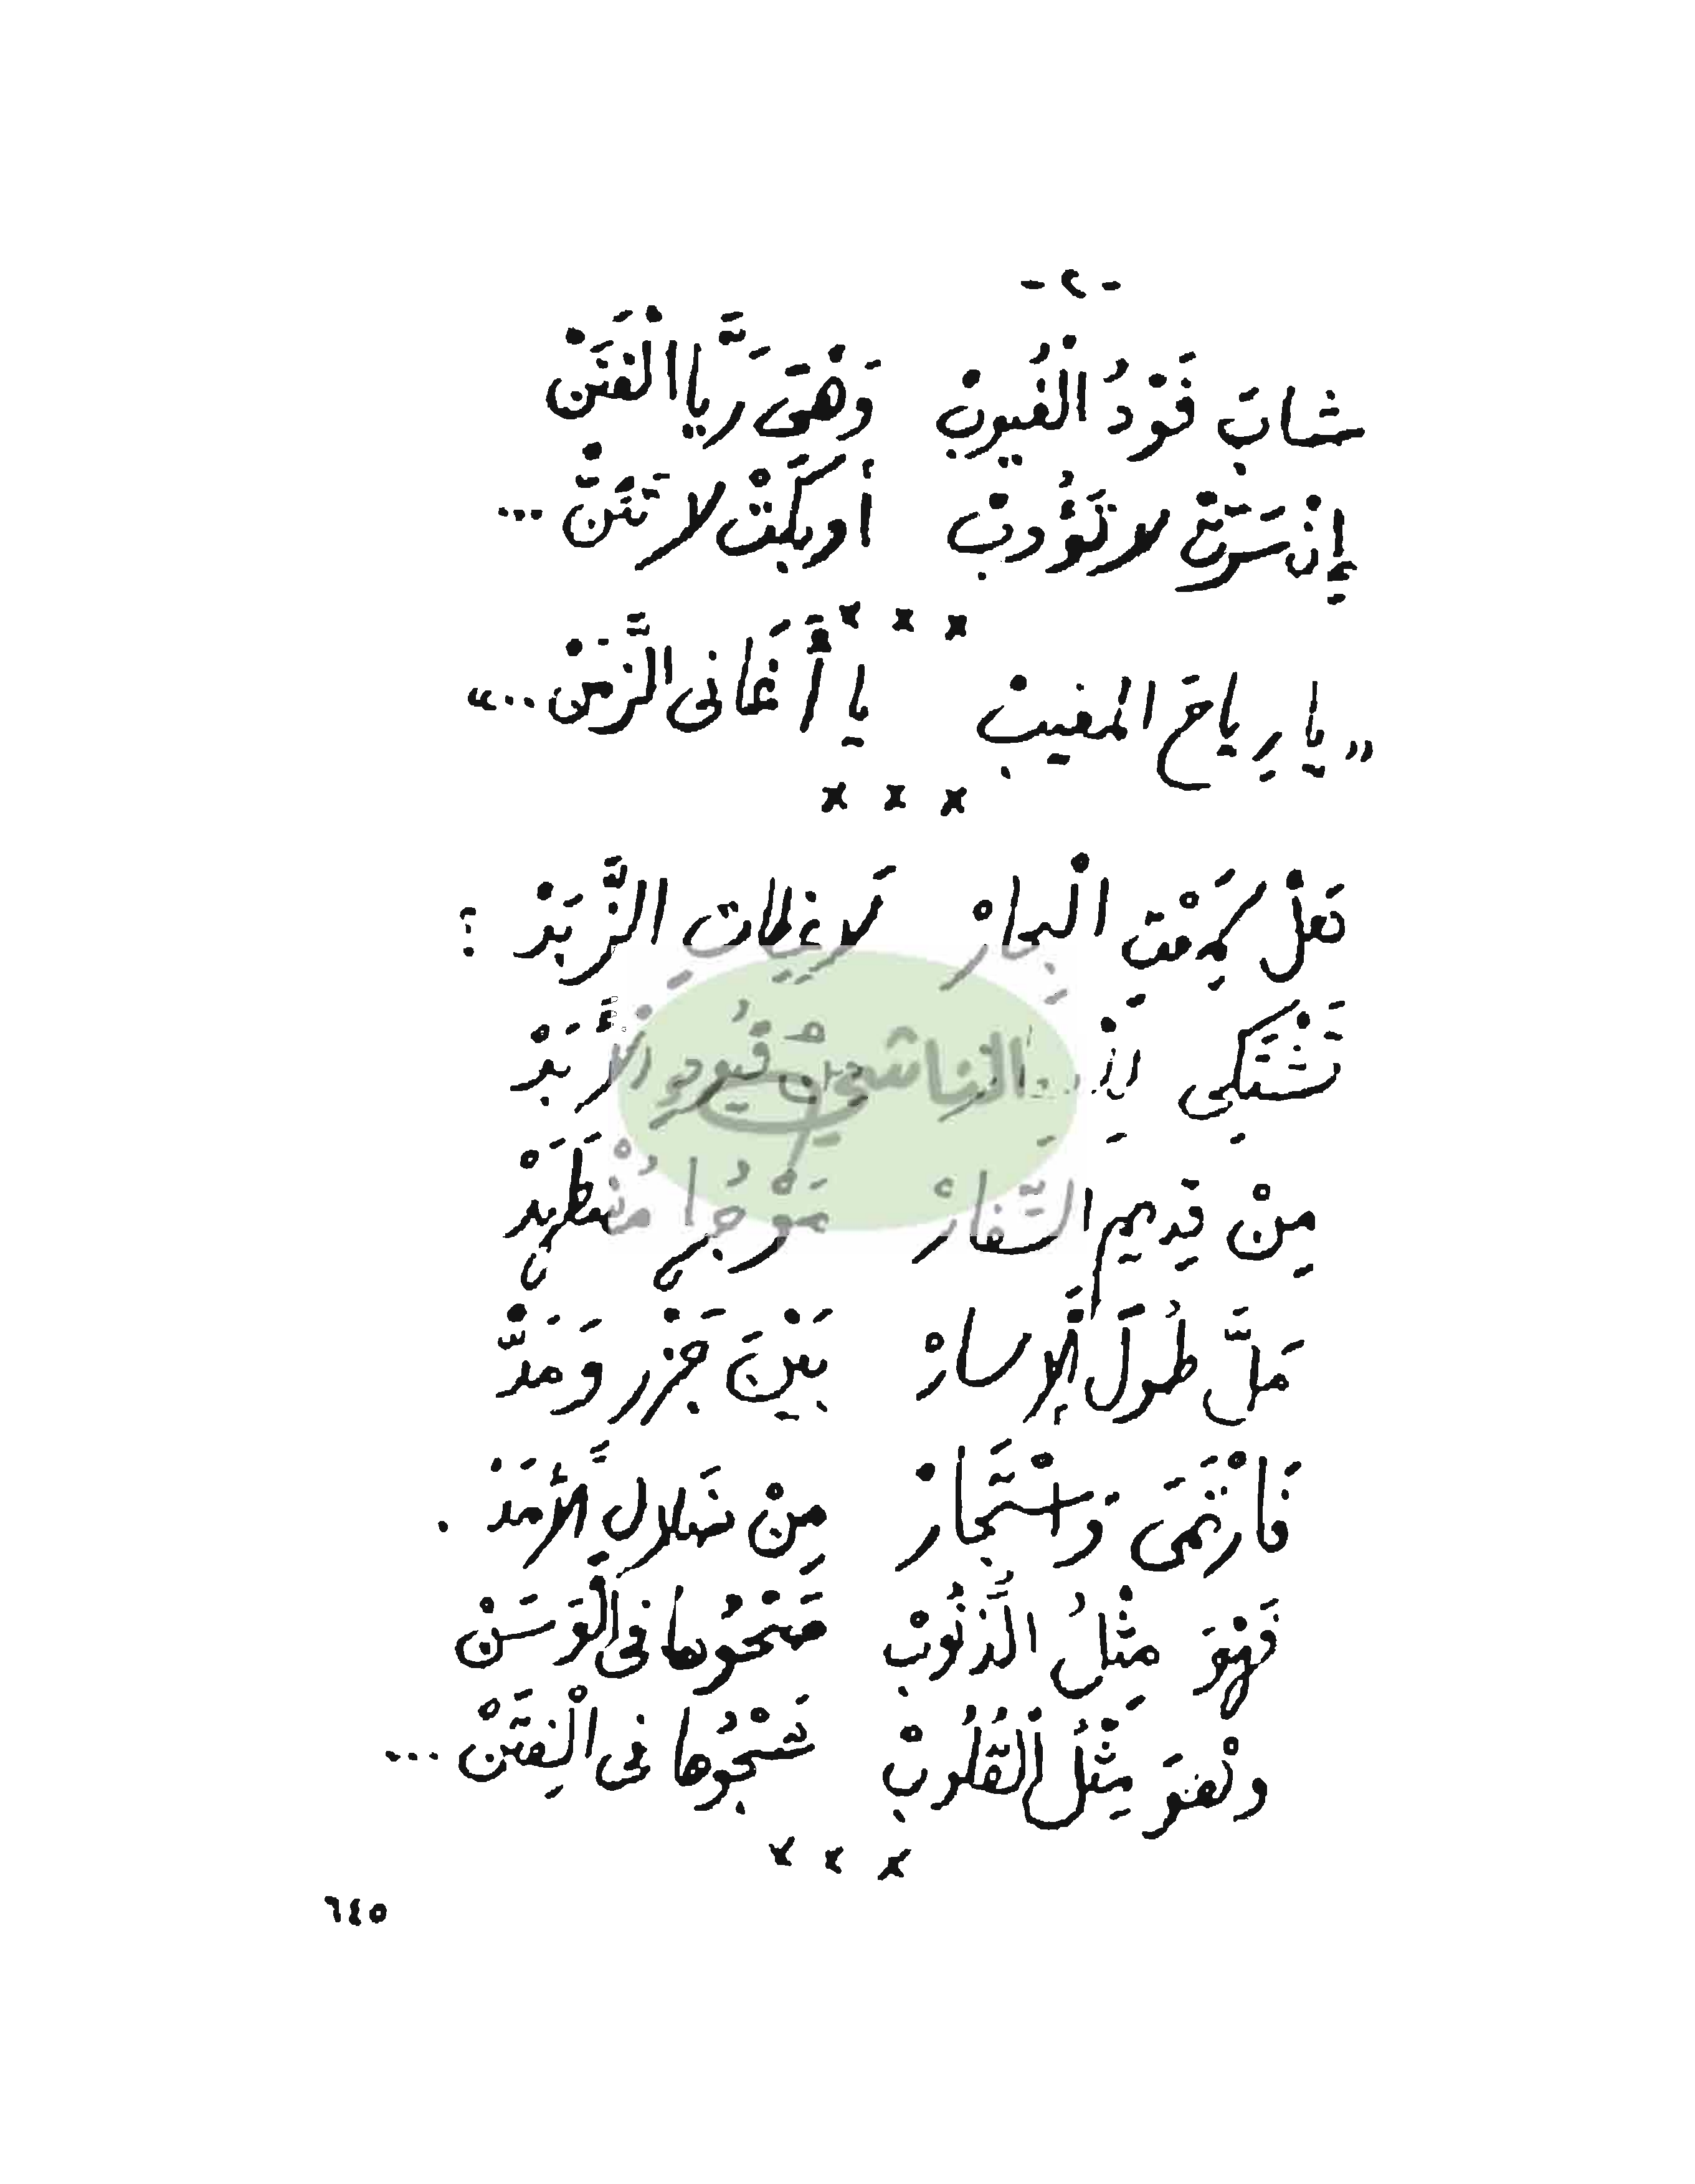 - ٢ -
شابَ فَوْدُ الْغُيوبْ وَهْىَ رَيَّا الْفَنَنْ
إنْ سَرَتْ لا تَؤُوبْ أو بَكَتْ لا تَئِنّْ ...
× × ×
« يا رِياحَ المغيبْ يا أَغَانى الزَّمَنْ ... »
× × ×
هَلْ كَرِهْتِ الْبِحارْ لاغِطاتِ الزَّبَدْ ؟
تَشْتَكِى قُيُودِ الأَبَدْ
مِنْ قَدِيمِ السِّفارْ مَوْجُها مُضْطَرِبْ
مَلَّ طُولَ الإِسارْ بَيْنَ جَزْرٍ وَمَدّْ
فَارْتَمَى وَاسْتَجارْ مِنْ ضَلالِ الأَمَدْ .
فَهْوَ مِثْلُ الذُّنُوبْ صَحْوُها فى الْوَسَنْ
وَهْوَ مِثْلُ الْقُلُوبْ شَجْوُها فى الْفِتَنْ ...
× × ×
٦٤٥
الناشي